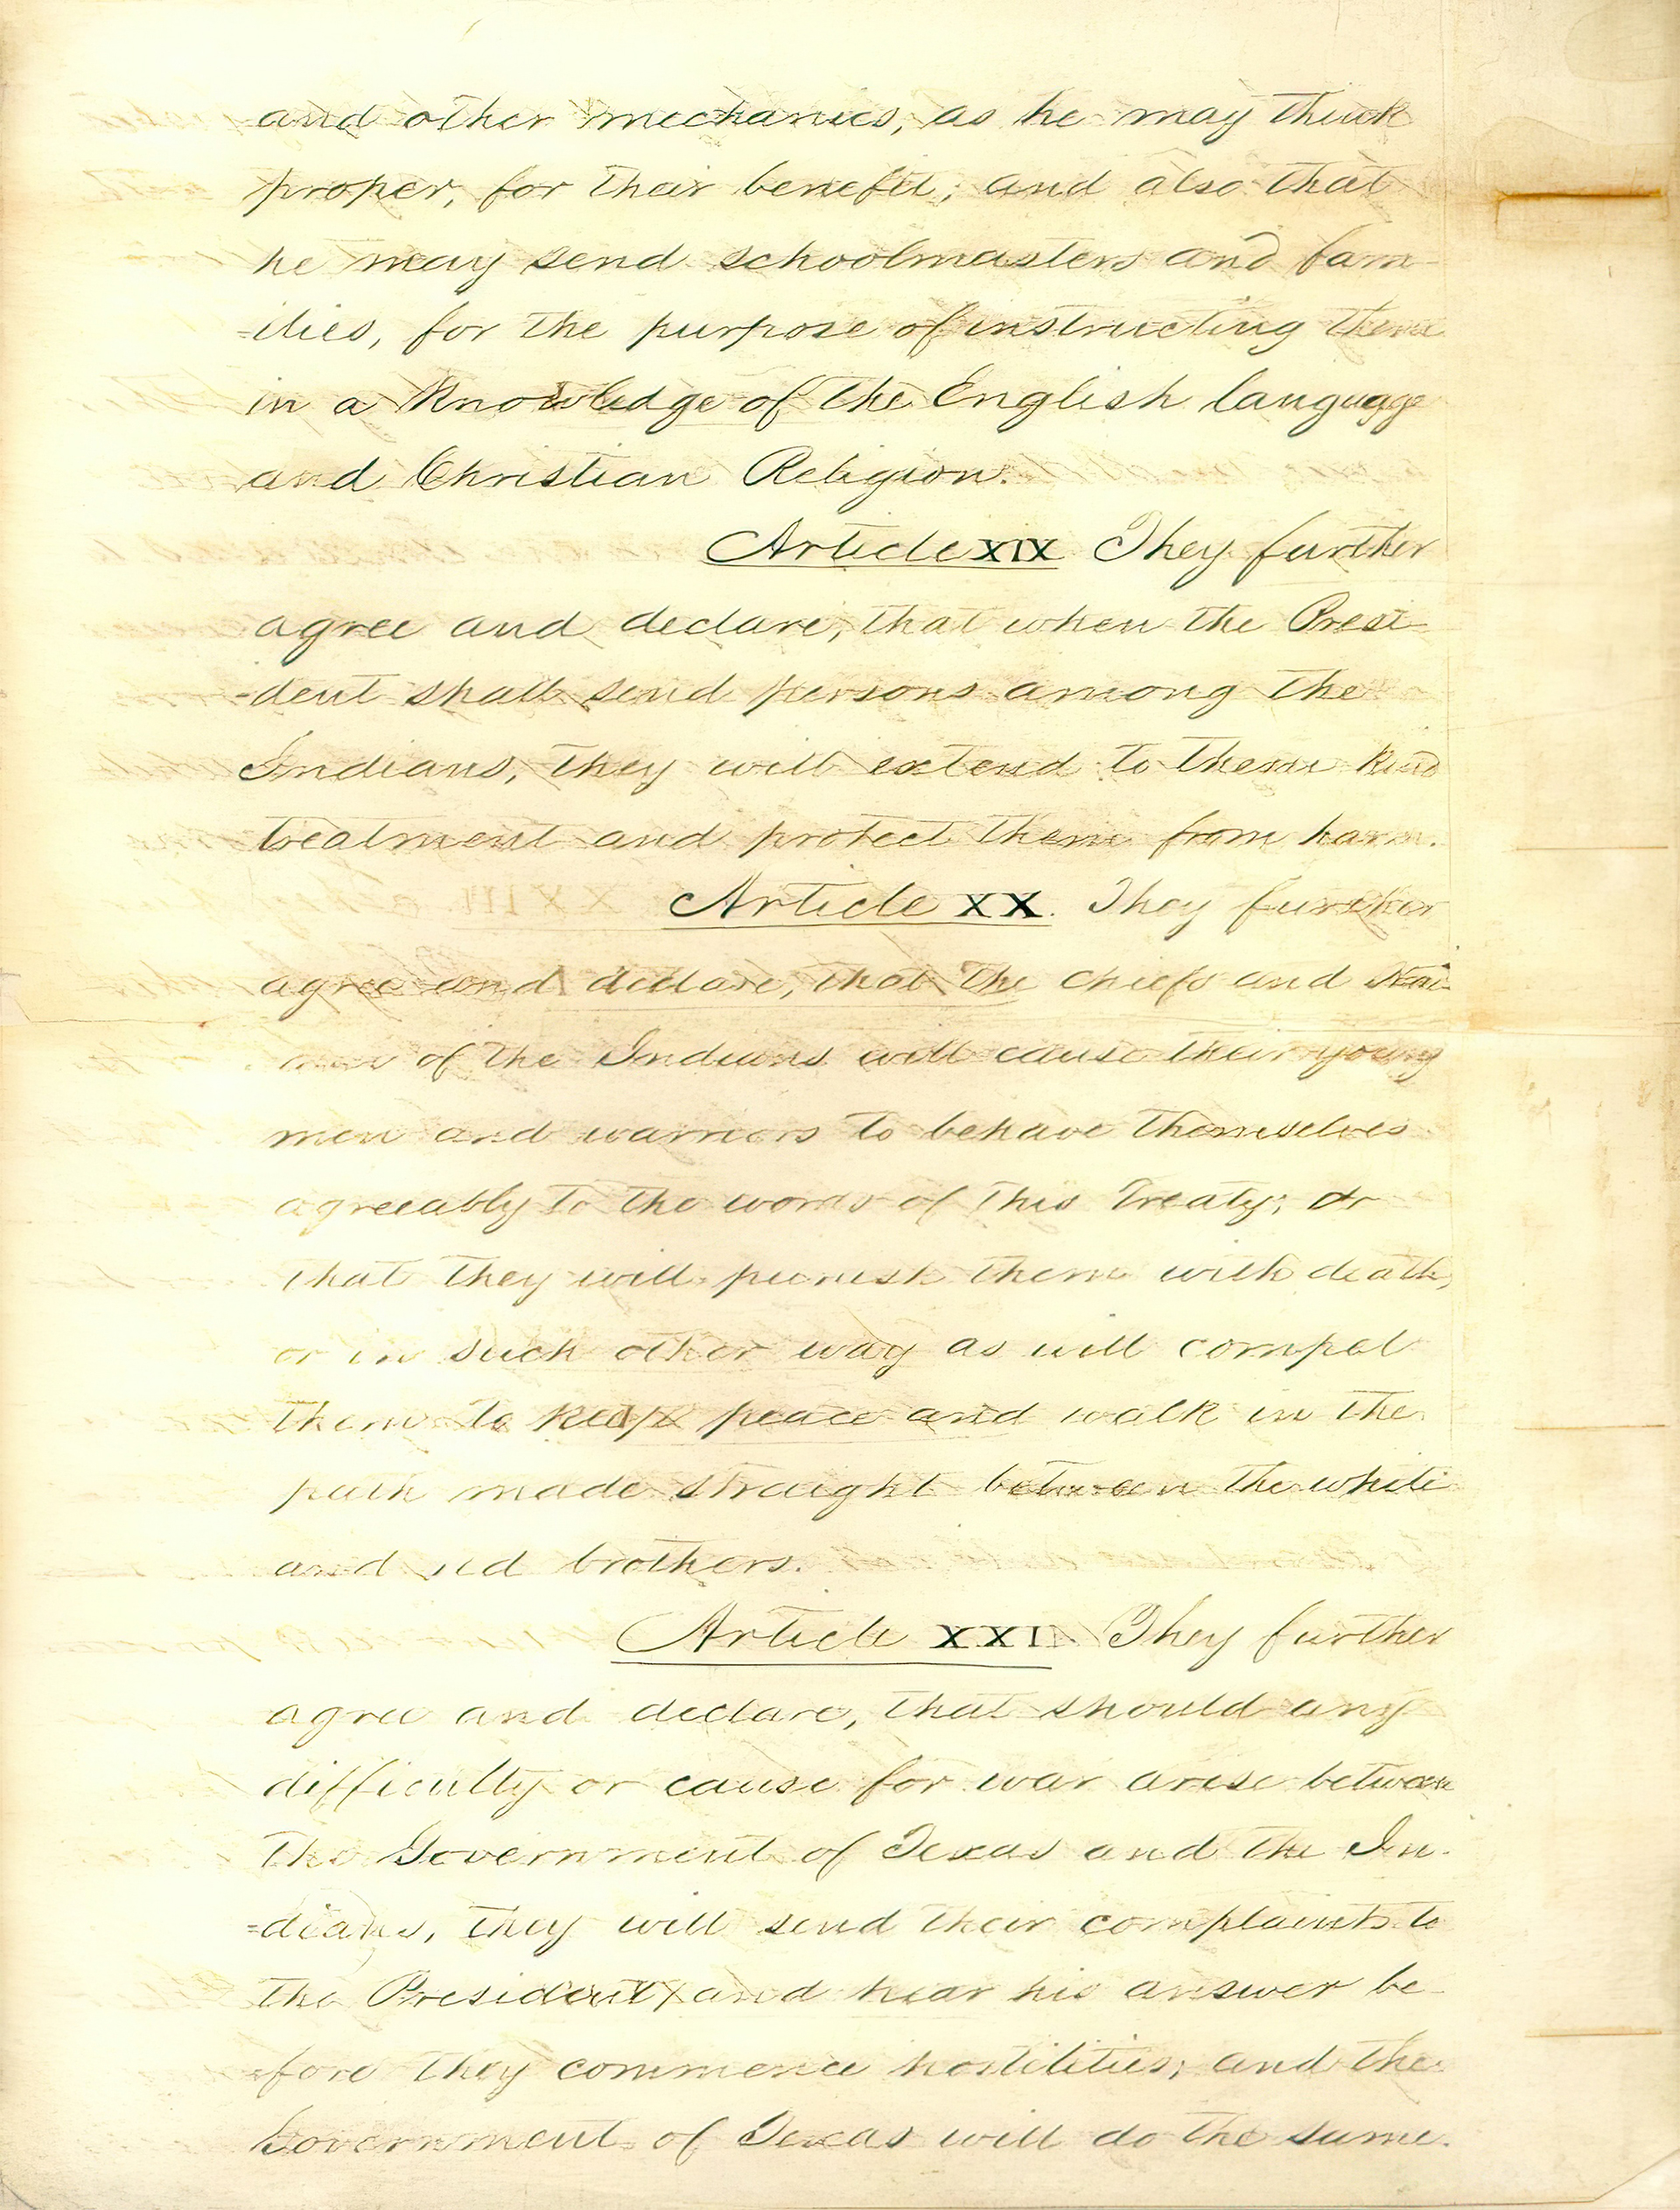 and other mechanics, as he may think
proper, for their benefit; and also that
he may send schoolmasters and fam-
=ilies, for the purpose of instructing them
in a knowledge of the English language
and Christian Religion.
Article XIX They further
agree and declare, that when the Presi-
-dent shall send persons among the
Indians, they will extend to them kind
treatment and protect them from harm.
Article XX. They further
agree and declare, that the chiefs and Head
men of the Indians will cause their young
men and warriors to behave themselves
agreeably to the words of this Treaty; or
that they will punish them with death,
or in such other way as will compel
them to keep peace and walk in the
path made straight between the white
and red brothers.
Article XXI They further
agree and declare, that should any
difficulty or cause for war arise between
the Government of Texas and the In-
=dians, they will send their complaints to
the President, and hear his answer be-
=fore they commence hostilities; and the
Government of Texas will do the same.